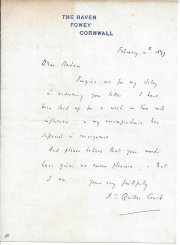 THE HAVEN
FOWEY
CORNWALL
February 10th 1899
Dear Madam
Forgive me for my delay
in answering your letter. I have
been laid up for a week or two with
influenza & my correspondence has
suffered in consequence
And please believe that your words
have given me sincere pleasure - that
I am
Yours very faithfully
A. T. Quiller Couch